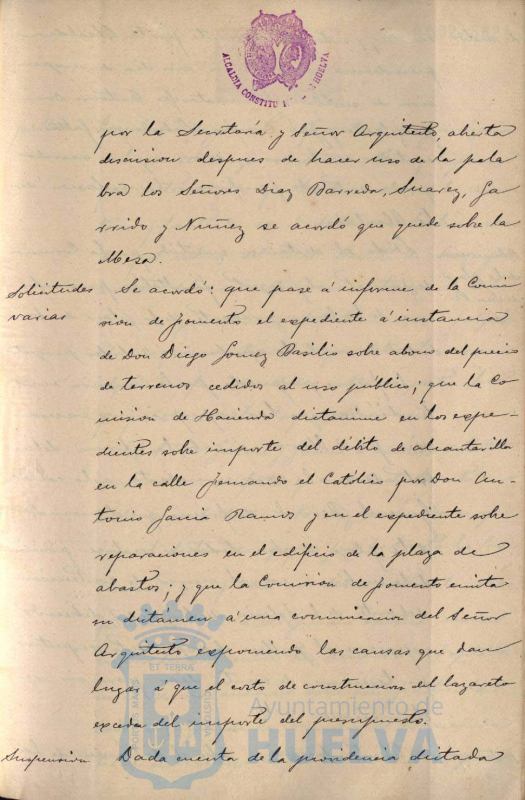 ALCALDIA CONSTITU HUELVA
por la Secretaría y Señor Arquitecto, abierta
discusion despues de hacer uso de la pala
bra los Señores Diaz Barreda, Suarez, Ga
rrido y Nuñez se acordó que quede sobre la
Mesa.
Solicitudes varias
Se acordó: que pase á informe de la Comi
sion de Fomento el expediente á instancia
de Don Diego Gomez Basilio sobre abono del precio
de terrenos cedidos al uso público; que la Co
mision de Hacienda dictamine en los expe-
dientes sobre importe del débito de alcantarilla
en la calle Fernando el Católico por Don An-
tonio Garcia Ramos y en el expediente sobre
reparaciones en el edificio de la plaza de
abastos; y que la Comision de Fomento emita
su dictamen á una comunicacion del Señor
Arquitecto exponiendo las causas que dan
lugar á que el costo de construccion del lazareto
exceda del importe del presupuesto.
Suspension
Dada cuenta de la providencia dictada
Ayuntamiento de
HUELVA